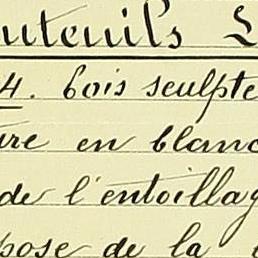 uteuils L
4. bois sculpte
re en blanc
de l'entoillag
pose de la